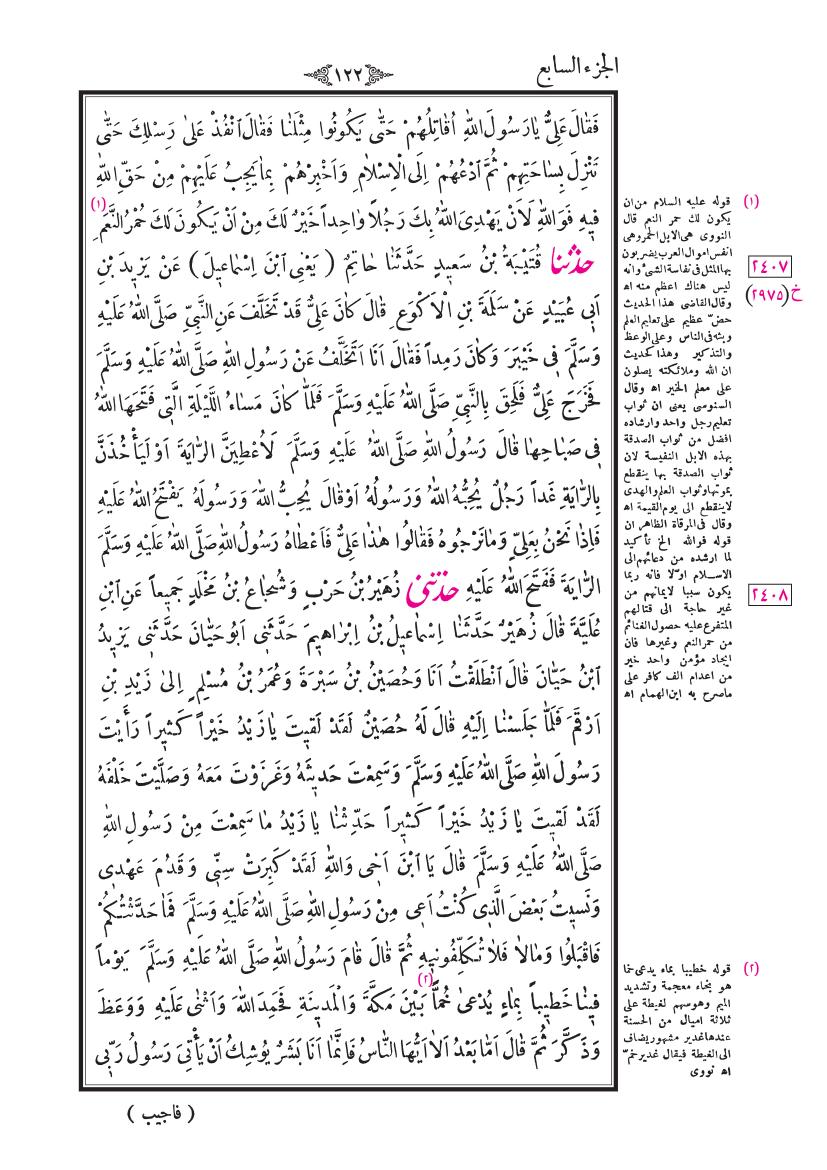 الجزء السابع
١٢٢
فَقَالَ عَلِيٌّ يَا رَسُولَ اللهِ أُقَاتِلُهُمْ حَتَّى يَكُونُوا مِثْلَنَا فَقَالَ انْفُذْ عَلَى رِسْلِكَ حَتَّى
تَنْزِلَ بِسَاحَتِهِمْ ثُمَّ ادْعُهُمْ إِلَى الْإِسْلَامِ وَأَخْبِرْهُمْ بِمَا يَجِبُ عَلَيْهِمْ مِنْ حَقِّ اللهِ
فِيهِ فَوَاللهِ لَأَنْ يَهْدِيَ اللهُ بِكَ رَجُلاً وَاحِداً خَيْرٌ لَكَ مِنْ أَنْ يَكُونَ لَكَ حُمْرُ النَّعَمِ (١)
حَدَّثَنَا قُتَيْبَةُ بْنُ سَعِيدٍ حَدَّثَنَا حَاتِمٌ ( يَعْنِي ابْنَ إِسْمَاعِيلَ ) عَنْ يَزِيدَ بْنِ
أَبِي عُبَيْدٍ عَنْ سَلَمَةَ بْنِ الْأَكْوَعِ قَالَ كَانَ عَلِيٌّ قَدْ تَخَلَّفَ عَنِ النَّبِيِّ صَلَّى اللهُ عَلَيْهِ
وَسَلَّمَ فِي خَيْبَرَ وَكَانَ رَمِداً فَقَالَ أَنَا أَتَخَلَّفُ عَنْ رَسُولِ اللهِ صَلَّى اللهُ عَلَيْهِ وَسَلَّمَ
فَخَرَجَ عَلِيٌّ فَلَحِقَ بِالنَّبِيِّ صَلَّى اللهُ عَلَيْهِ وَسَلَّمَ فَلَمَّا كَانَ مَسَاءُ اللَّيْلَةِ الَّتِي فَتَحَهَا اللهُ
فِي صَبَاحِهَا قَالَ رَسُولُ اللهِ صَلَّى اللهُ عَلَيْهِ وَسَلَّمَ لَأُعْطِيَنَّ الرَّايَةَ أَوْ لَيَأْخُذَنَّ
بِالرَّايَةِ غَداً رَجُلٌ يُحِبُّهُ اللهُ وَرَسُولُهُ أَوْ قَالَ يُحِبُّ اللهَ وَرَسُولَهُ يَفْتَحُ اللهُ عَلَيْهِ
فَإِذَا نَحْنُ بِعَلِيٍّ وَمَا نَرْجُوهُ فَقَالُوا هٰذَا عَلِيٌّ فَأَعْطَاهُ رَسُولُ اللهِ صَلَّى اللهُ عَلَيْهِ وَسَلَّمَ
الرَّايَةَ فَفَتَحَ اللهُ عَلَيْهِ حَدَّثَنِي زُهَيْرُ بْنُ حَرْبٍ وَشُجَاعُ بْنُ مَخْلَدٍ جَمِيعاً عَنِ ابْنِ
عُلَيَّةَ قَالَ زُهَيْرٌ حَدَّثَنَا إِسْمَاعِيلُ بْنُ إِبْرَاهِيمَ حَدَّثَنِي أَبُو حَيَّانَ حَدَّثَنِي يَزِيدُ
ابْنُ حَيَّانَ قَالَ انْطَلَقْتُ أَنَا وَحُصَيْنُ بْنُ سَبْرَةَ وَعُمَرُ بْنُ مُسْلِمٍ إِلَى زَيْدِ بْنِ
أَرْقَمَ فَلَمَّا جَلَسْنَا إِلَيْهِ قَالَ لَهُ حُصَيْنٌ لَقَدْ لَقِيتَ يَا زَيْدُ خَيْراً كَثِيراً رَأَيْتَ
رَسُولَ اللهِ صَلَّى اللهُ عَلَيْهِ وَسَلَّمَ وَسَمِعْتَ حَدِيثَهُ وَغَزَوْتَ مَعَهُ وَصَلَّيْتَ خَلْفَهُ
لَقَدْ لَقِيتَ يَا زَيْدُ خَيْراً كَثِيراً حَدِّثْنَا يَا زَيْدُ مَا سَمِعْتَ مِنْ رَسُولِ اللهِ
صَلَّى اللهُ عَلَيْهِ وَسَلَّمَ قَالَ يَا ابْنَ أَخِي وَاللهِ لَقَدْ كَبِرَتْ سِنِّي وَقَدُمَ عَهْدِي
وَنَسِيتُ بَعْضَ الَّذِي كُنْتُ أَعِي مِنْ رَسُولِ اللهِ صَلَّى اللهُ عَلَيْهِ وَسَلَّمَ فَمَا حَدَّثْتُكُمْ
فَاقْبَلُوا وَمَا لَا فَلَا تُكَلِّفُونِيهِ ثُمَّ قَالَ قَامَ رَسُولُ اللهِ صَلَّى اللهُ عَلَيْهِ وَسَلَّمَ يَوْماً
فِينَا خَطِيباً بِمَاءٍ يُدْعَى خُمًّا (٢) بَيْنَ مَكَّةَ وَالْمَدِينَةِ فَحَمِدَ اللهَ وَأَثْنَى عَلَيْهِ وَوَعَظَ
وَذَكَّرَ ثُمَّ قَالَ أَمَّا بَعْدُ أَلَا أَيُّهَا النَّاسُ فَإِنَّمَا أَنَا بَشَرٌ يُوشِكُ أَنْ يَأْتِيَ رَسُولُ رَبِّي
( فاجيب )
(١) قوله عليه السلام من ان
يكون لك حمر النعم قال
النووى هى الابل الحمر وهى
انفس اموال العرب يضربون
بها المثل فى نفاسة الشئ وانه
ليس هناك اعظم منه اه
وقال القاضى هذا الحديث
حض عظيم على تعليم العلم
وبثه فى الناس وعلى الوعظ
والتذكير وهذا كحديث
ان الله وملائكته يصلون
على معلم الخير اه وقال
السنوسى يعنى ان ثواب
تعليم رجل واحد وارشاده
افضل من ثواب الصدقة
بهذه الابل النفيسة لان
ثواب الصدقة بها ينقطع
بموتها وثواب العلم والهدى
لاينقطع الى يوم القيمة اه
وقال فى المرقاة الظاهر ان
قوله فوالله الخ تأكيد
لما ارشده من دعائهم الى
الاسلام اولا فانه ربما
يكون سببا لايمانهم من
غير حاجة الى قتالهم
المتفرع عليه حصول الغنائم
من حمر النعم وغيرها فان
ايجاد مؤمن واحد خير
من اعدام الف كافر على
ماصرح به ابن الهمام اه
٢٤٠٧
خ (٢٩٧٥)
٢٤٠٨
(٢) قوله خطيبا بماء يدعى خما
هو بخاء معجمة وتشديد
الميم وهو سم لغيطة على
ثلاثة اميال من الحسنة
عندها غدير مشهور يضاف
الى الغيطة فيقال غدير خمّ
اه نووى